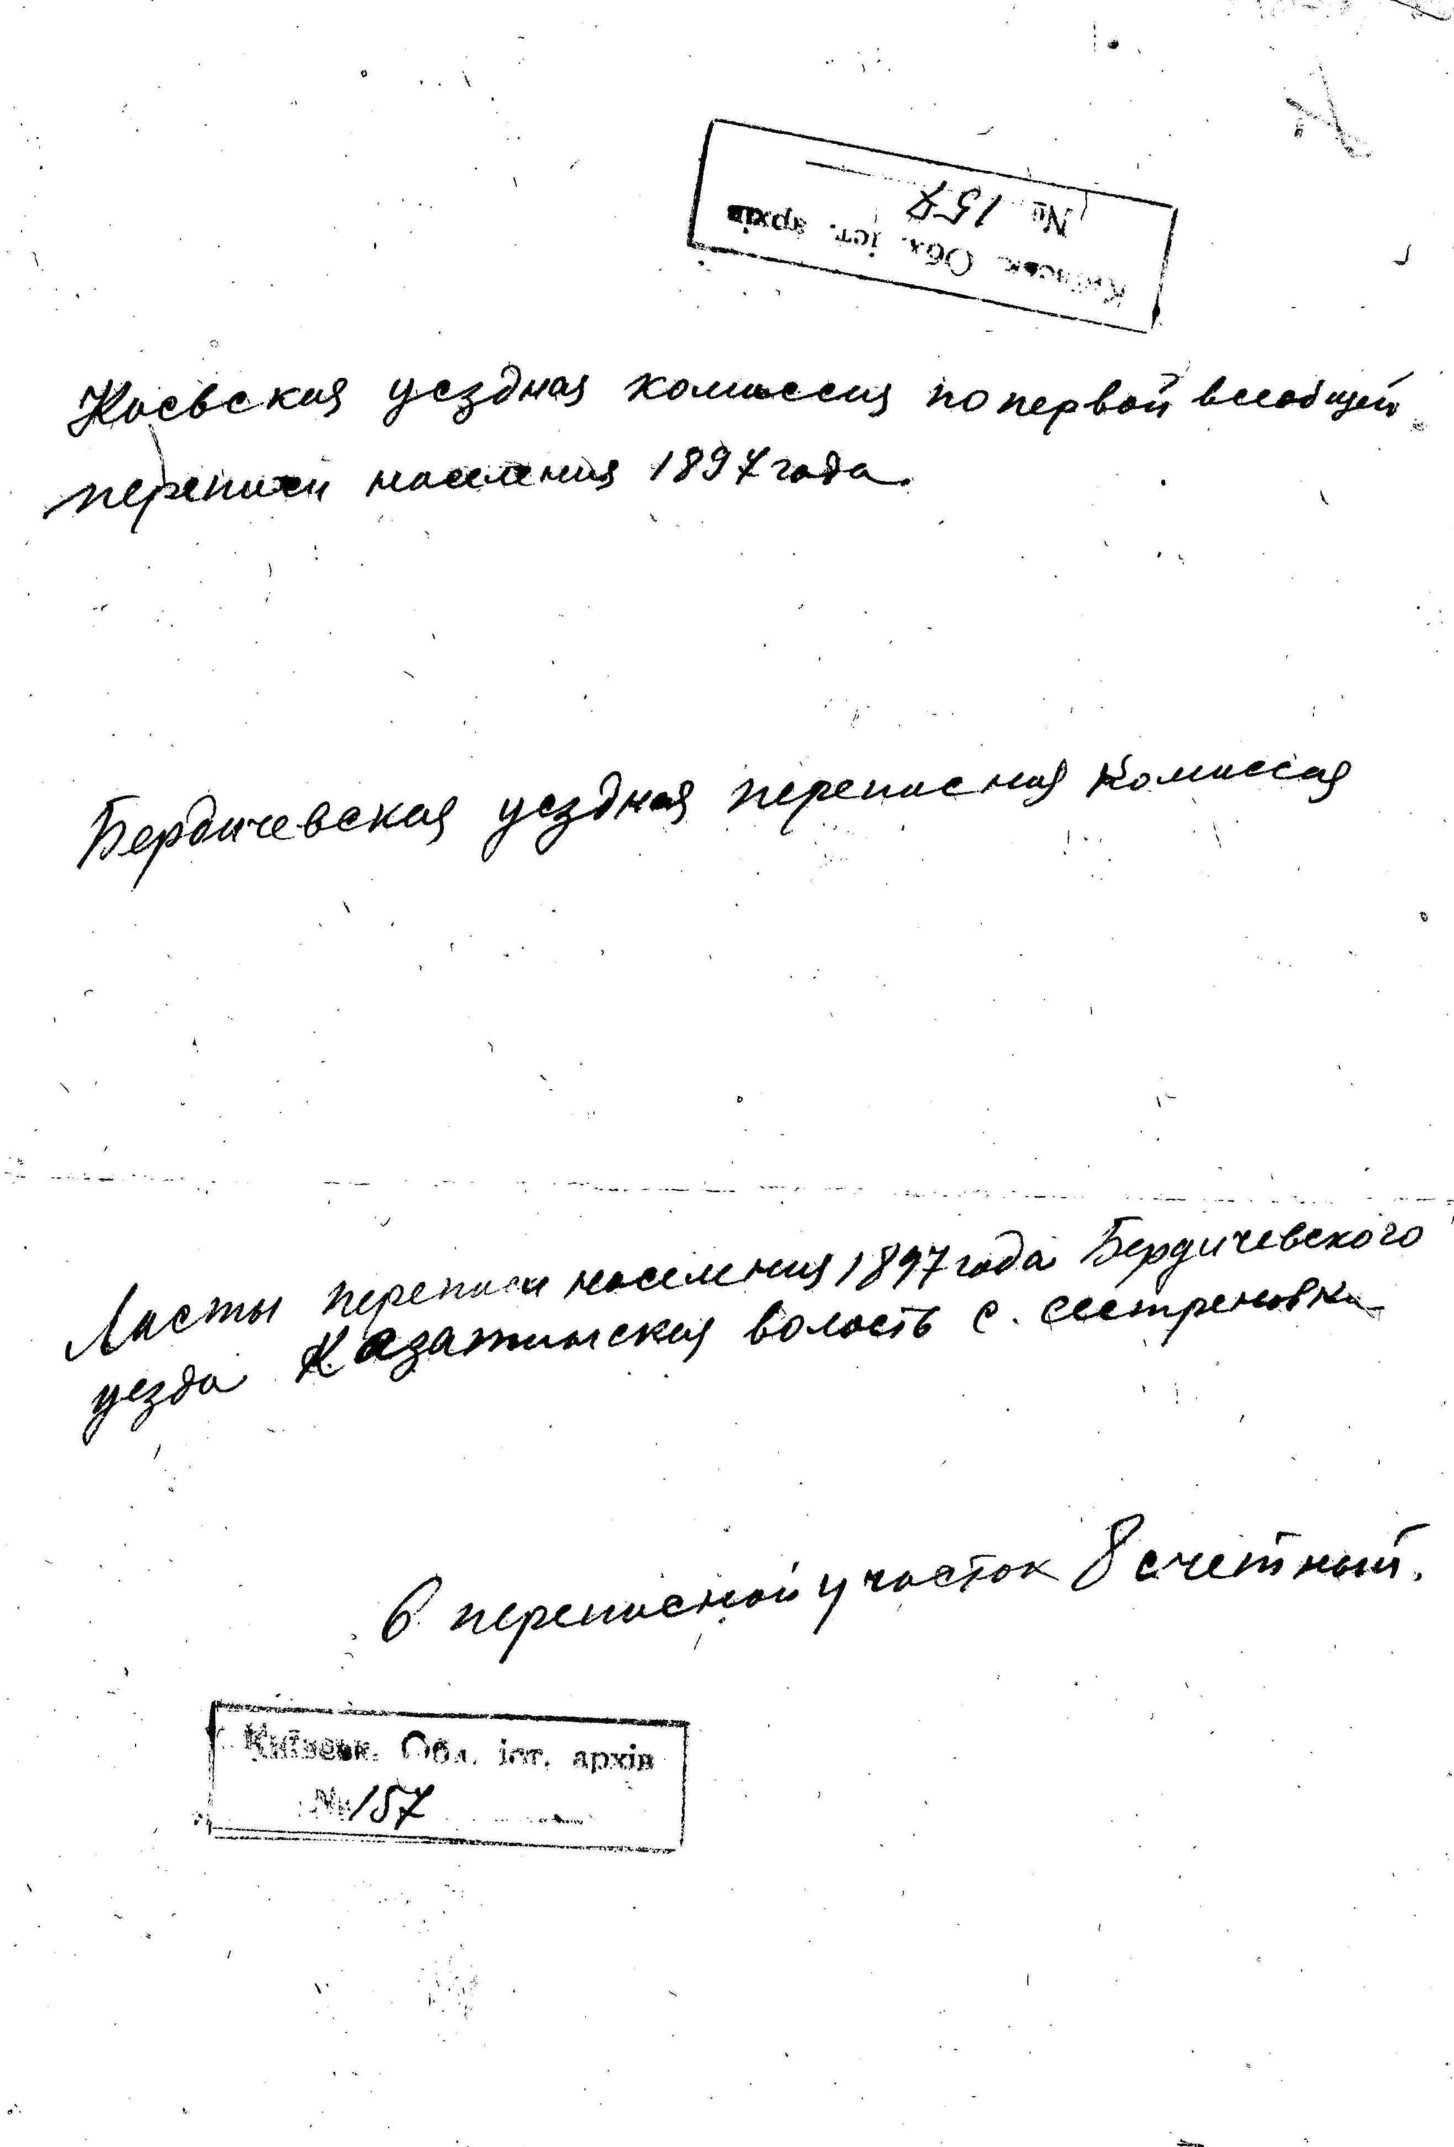 Київськ. Обл. іст. архів
№ 157
Киевская уездная комиссия по первой всеобщей
переписи населения 1897 года.
Бердичевская уездная переписная комиссия
Листы переписи населения 1897 года Бердичевского
уезда Казатинская волость с. Сестреновка
6 переписной участок 8 счетный.
Київськ. Обл. іст. архів
№ 157